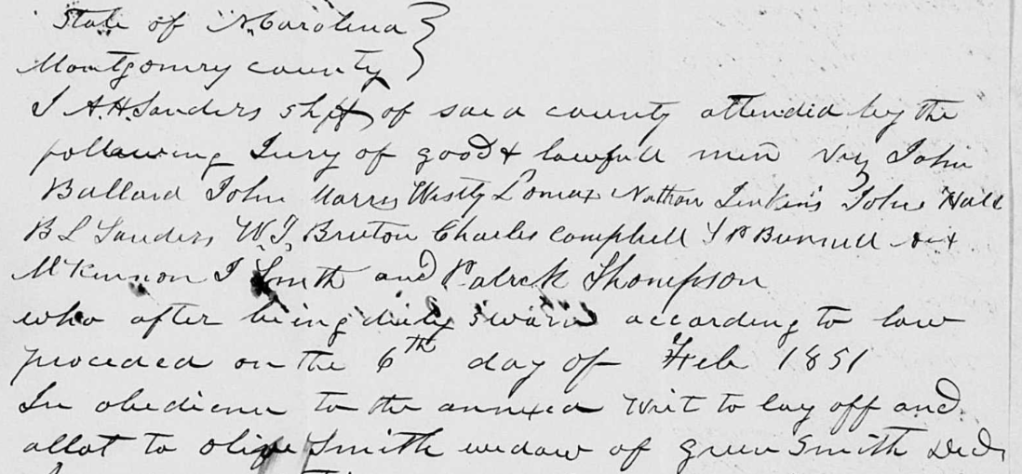 State of N. Carolina
Montgomry county
I A.H. Sanders Shff of said county attended by the
following Jury of good & lawfull men Viz John
Ballard John Harris Westly Lomax Nathan Jenkins John Hall
B L Sanders W.J. Bruton Charles Campbell
McKinnon J Smith and Patrck Thompson
who after being duly sworn according to law
proceded on the 6th day of Feb 1851
In obedienc to the annexed Writ to lay off and
allot to olive Smith widow of green Smith Decd